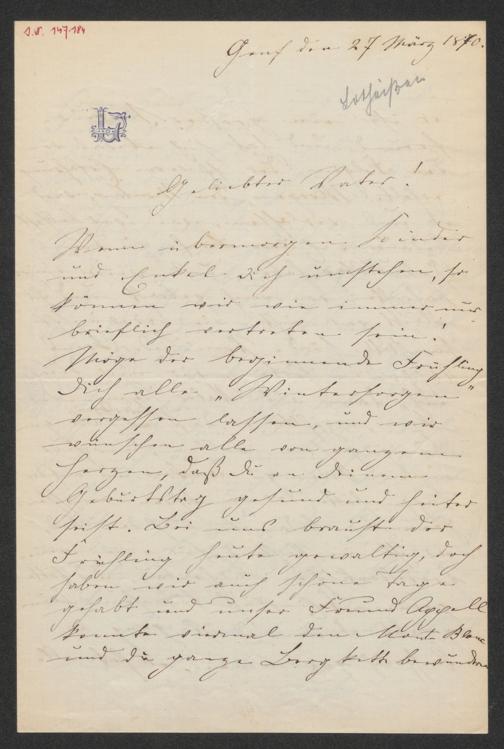 I.N. 147.184
Genf den 27 März 1870.
Lotheißen
L
Geliebter Vater!
Wenn übermorgen Kinder
und Enkel dich umstehen, so
können wir wie immer nur
brieflich vertreten sein!
Möge der beginnende Frühling
dich alle „Wintersorgen“
vergessen lassen, und wir
wünschen alle von ganzem
Herzen, daß du an deinem
Geburtstag gesund und heiter
seist. Bei uns braust der
Frühling heute gewaltig, doch
haben wir auch schöne Tage
gehabt und unser Freund Appell
konnte viermal den Mont Blanc
und die ganze Bergkette bewundern